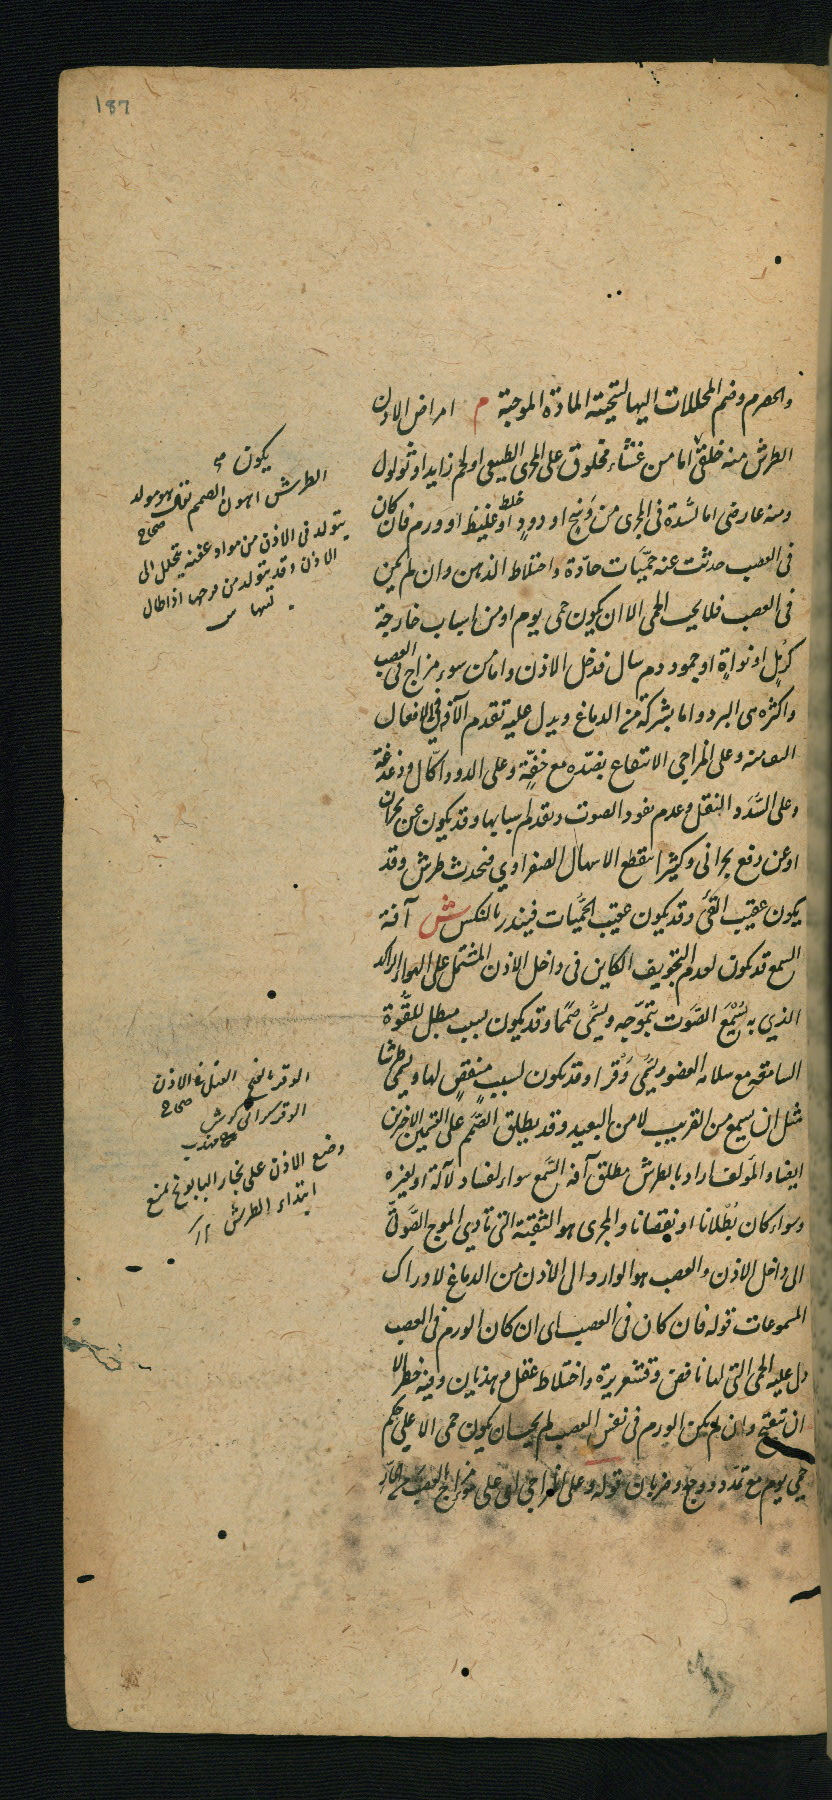 187
والحصرم وضم المحللات اليها لتحيته المادة الموجبة م امراض الاذن
الطرش منه خلقي اما من غشاء مخلوق على المجرى الطبيعي او لحم زايد او ثولول
ومنه عارضى اما لسدة فى المجرى من وسخ او دود او خلط غليظ او ورم فان كان
فى العصب حدثت عنه حميات حادة واختلاط الذهن وان لم يكن
فى العصب فلا يجب الحمى الا ان يكون حمى يوم او من اسباب خارجة
كرمل او نواة او جمود دم سال فدخل الاذن واما من سوء مزاج فى العصب
واكثره من البرد واما بشركة من الدماغ ويدل عليه تقدم الآفة فى الافعال
وعلى المراجى الانتفاع بضده مع خفة وعلى الدود اكال ودغدغة
وعلى السدد الثقل وعدم نفود الصوت وتقدم اسبابها وقد يكون عن بحران
او عن دفع بحرانى وكثيرا ينقطع الاسهال الصفراوي فيحدث طرش وقد
يكون عقيب القئ وقد يكون عقيب الحميات فينذر بالنكس ش آفة
السمع قد تكون لعدم التجويف الكاين فى داخل الاذن المشتمل على الهواء الراكد
الذي به يسمع الصوت بتموجه ويسمى صمما وقد يكون لسبب مبطل للقوة
السامعة مع سلامة العضو ويسمى وقرا وقد تكون لسبب منقص لها ويسمى طرشا
مثل ان يسمع من القريب لا من البعيد وقد يطلق الصمم على القسمين الاخرين
ايضا والمؤلف اراد بالطرش مطلق آفة السمع سواء لفساد لآلة او لغيره
وسواء كان بطلانا او نقصانا والمجرى هو الثقبة التى تادي الموج الصوتى
الى داخل الاذن والعصب هو الوارد الى الاذن من الدماغ لادراك
المسموعات قوله فان كان فى العصب اى ان كان الورم فى العصب
دل عليه الحمى التى لها نافض وقشعريرة واختلاط عقل وهذيان وفيه خطر الا
ان تنفتح وان لم يكن الورم فى نفس العصب لم يجب ان يكون حمى الا على حكم
حمى يوم مع تمدد ووجع وضربان قوله وعلى المزاجى اى على مزاج العصب
يكون
الطرش اهون الصمم يقال هو مولد صحاح
يتولد فى الاذن من مواد عفنة يتحلل الى
الاذن وقد يتولد من قرحها اذا طال
الوقر بالفتح الثقل فى الاذن صحاح
الوقر كرانى كوش مهذب
وضع الاذن على بخار البابونج يمنع
ابتداء الطرش